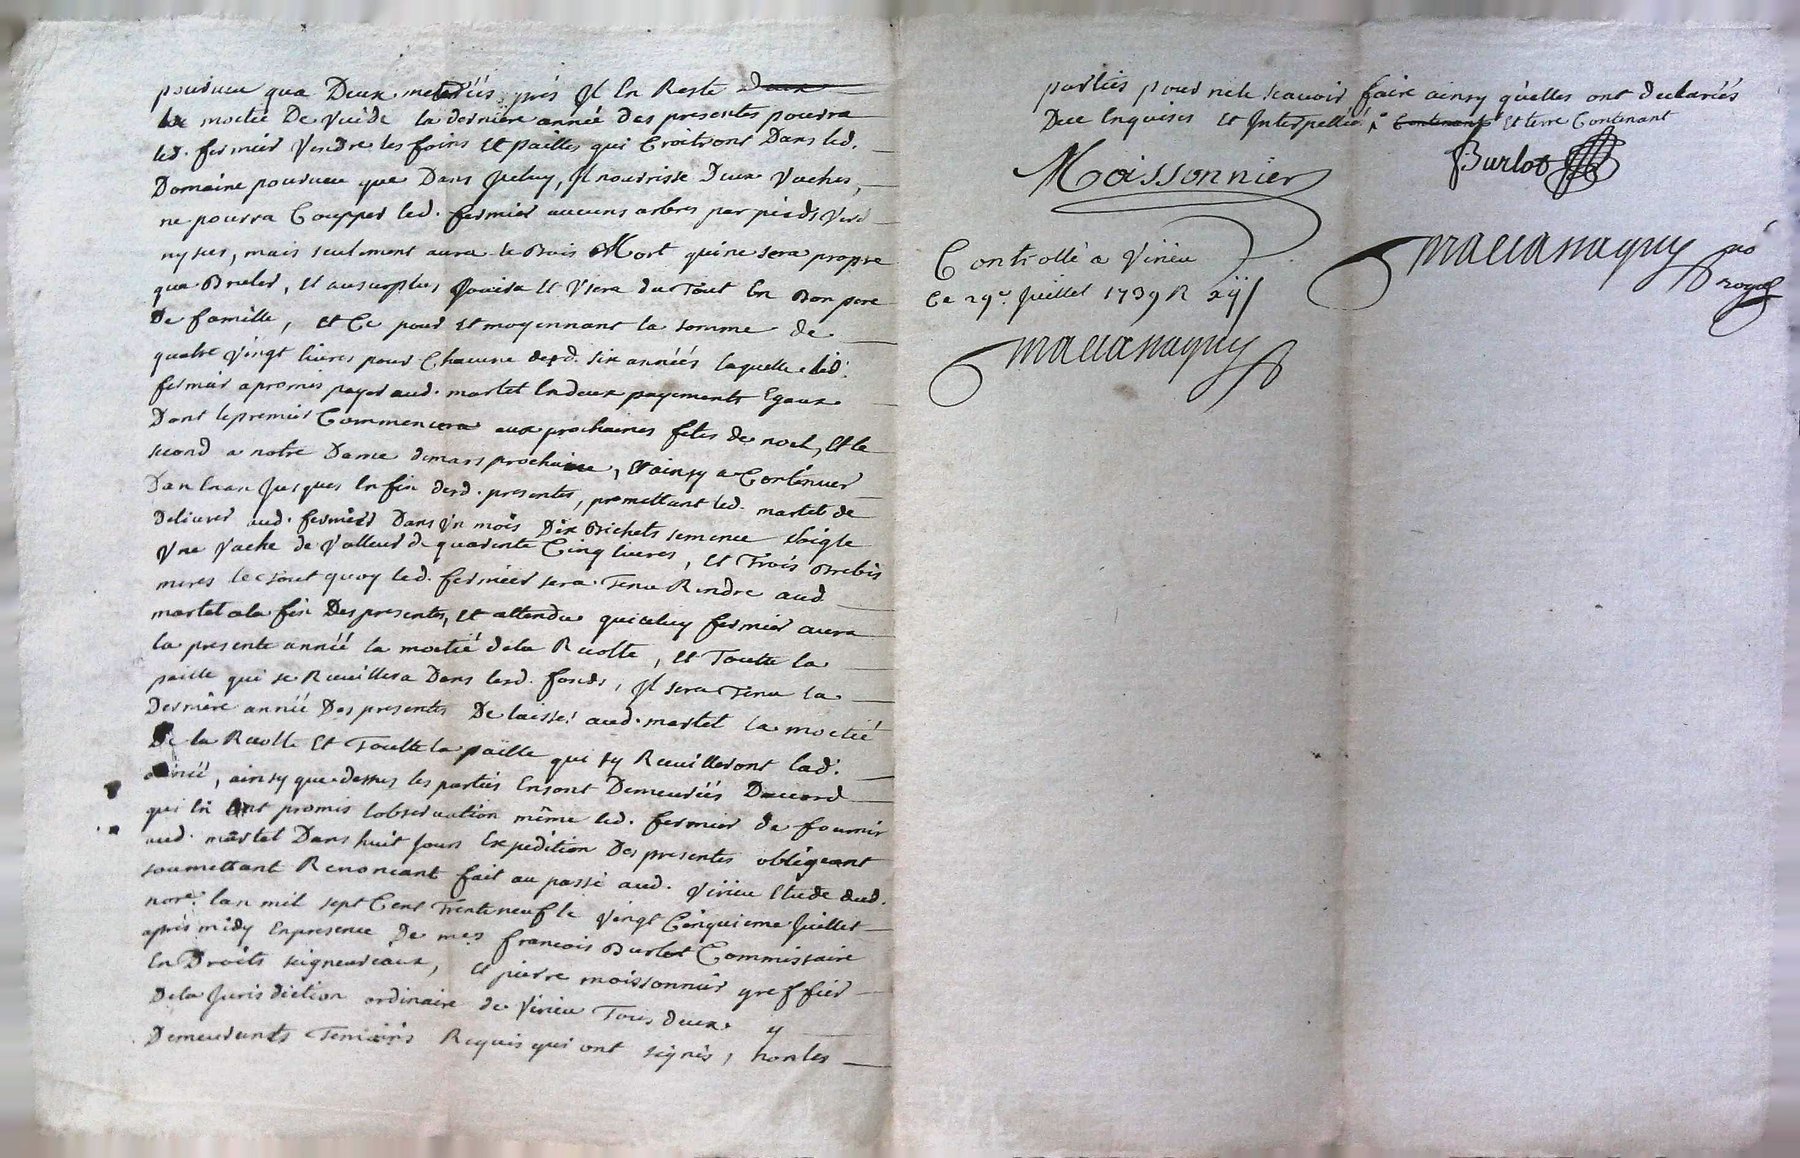 pourveu qua Deux meteriés prés Il En Reste
La moetié De Vuide La derniere année des presentes pourra
led. fermier Vendre les foins Et pailles qui Croitront Dans led.
Domaine pourveu que Dans Iceluy, Il nourrisse Deux Vaches,
ne pourra Coupper led. fermier aucuns arbres par pieds Verd
ny sec, mais seulement aura le Bois Mort qui ne sera propre
qua Bruler, Et au surplus Jouira Et Usera du Tout En Bon pere
De famille, Et Ce pour Et moyennant la somme de
quatre Vingt livres pour Chacune desd. six années laquelle led.
fermier a promis payer aud. martet En deux payements Egaux
Dont le premier Commencera aux prochaines fetes de noel, Et le
second a notre Dame de mars prochaine, Et ainsy a Continuer
Dan En an Jusques En fin desd. presentes, promettant led. martet de
Delivrer aud. fermier Dans Un mois Dix Bichets semence Soigle
Une Vache de Valleur de quarente Cinq livres, Et Trois Brebis
meres le Tout quoy led. fermier sera Tenu Rendre aud.
martet a la fin Des presentes, Et attendu quiceluy fermier aura
la presente année la moetié dela Recolte, Et Toutte la
paille qui se Recuillera Dans lesd. fonds, Il sera Tenu la
Derniére année Des presentes De laisser aud. martet la moetié
De la Recolte Et Toutte la paille qui sy Recuilleront lad.
année, ainsy que dessus les parties En sont Demeurées Daccord
qui En ont promis lobservation même led. fermier de fournir
aud. martet Dans huit Jours Expedition Des presentes obligeant
soumettant Renoncant fait au passé aud. Virieu Etude dud.
nore. lan mil sept Cent Trente neuf le Vingt Cinquieme Juillet
aprés midy En presence De mes. francois Burlot Commissaire
En Droits seigneuriaux, Et pierre moissonnier greffier
De la Jurisdiction ordinaire de Virieu Tous deux y
Demeurants Temoins Requis qui ont signés, non les
parties pour ne le scavoir faire ainsy quelles ont declarées
Dee Enquises Et Interpellée, Contenant Et terre Contenant
Moissonnier
Burlot
Controllé a Virieu
Ce 29e. Juillet 1739 R
royal